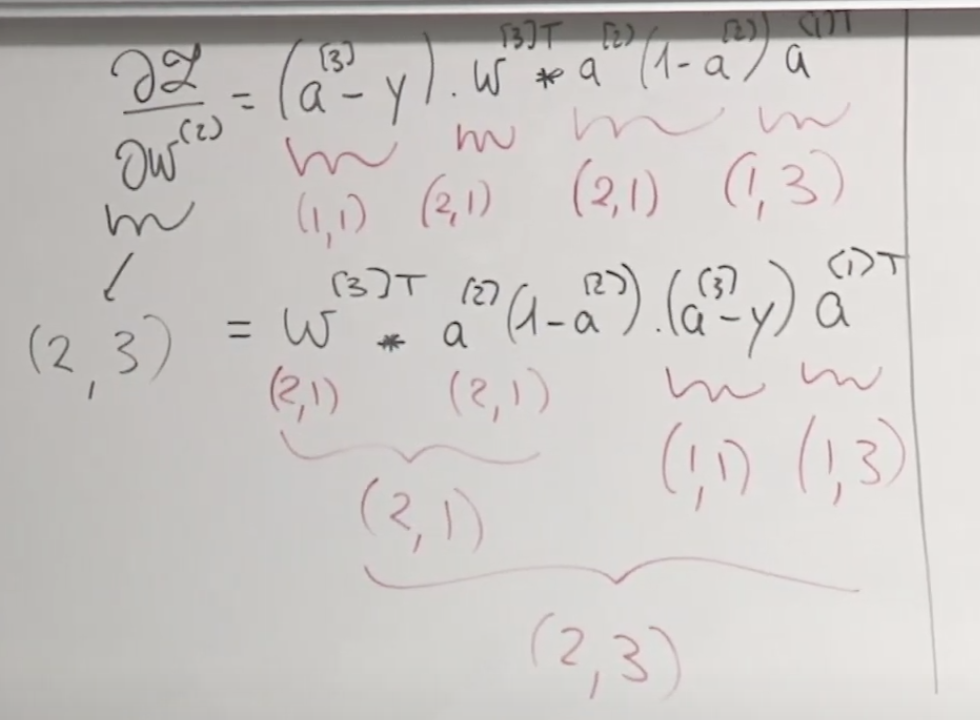 ∂ℒ/∂w^(2) = (a^[3] - y) . w^[3]T * a^[2] (1 - a^[2]) a^[1]T
(1,1) (2,1) (2,1) (1,3)
(2,3) = w^[3]T * a^[2] (1 - a^[2]) . (a^[3] - y) a^[1]T
(2,1) (2,1) (1,1) (1,3)
(2,1)
(2,3)